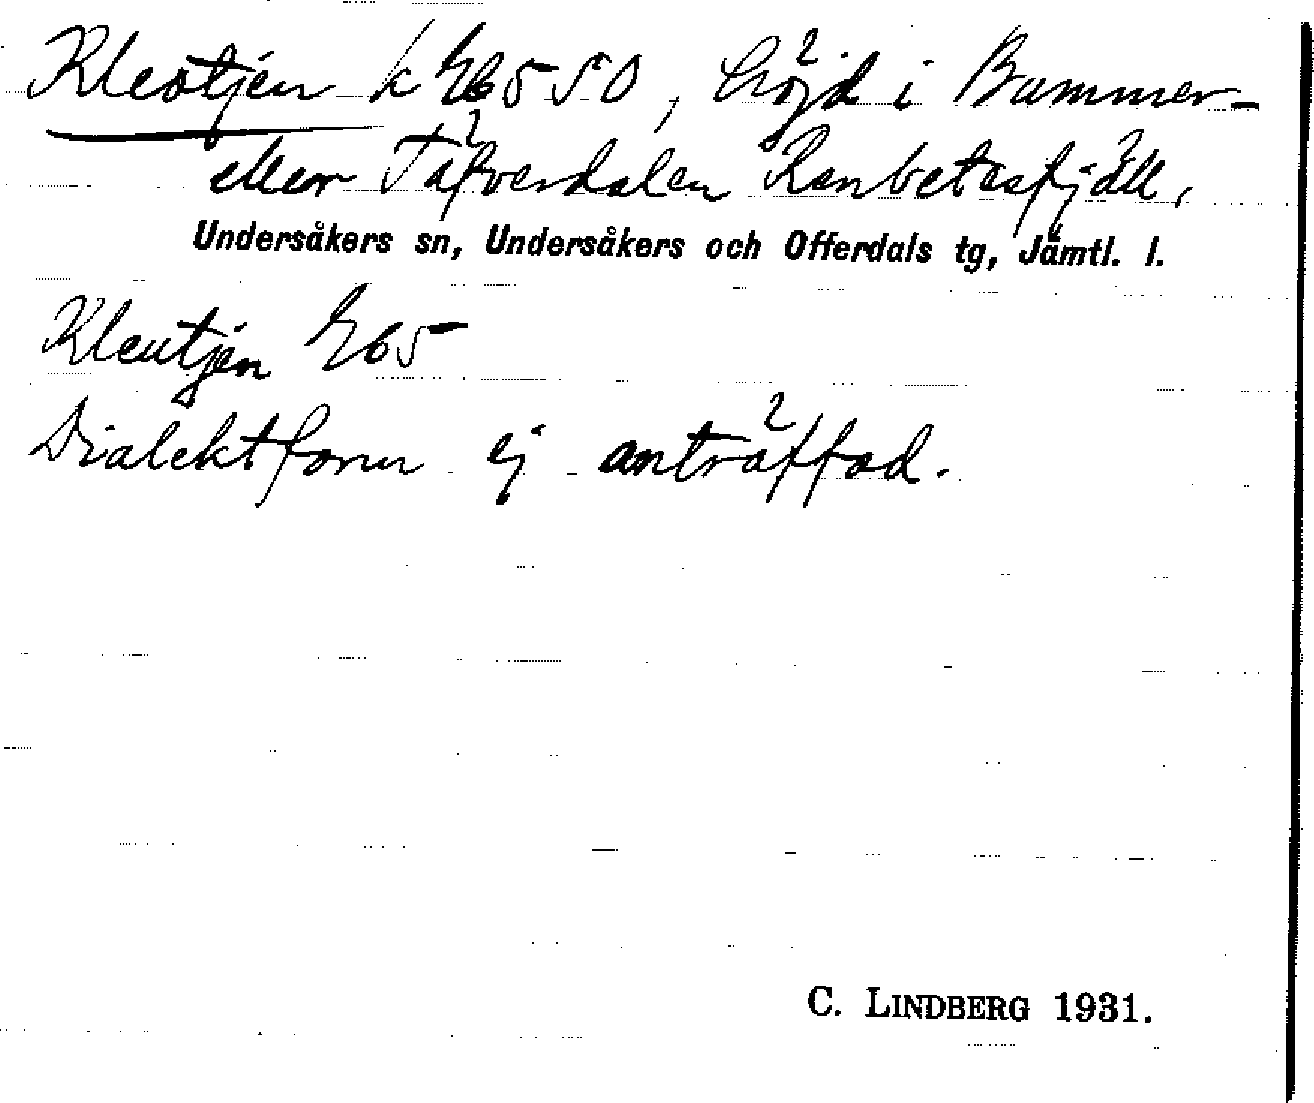 Kleotjen k Eb5 SO, höjd i Bummer-
eller Täfverdalen Renbetesfjäll,
Undersåkers sn, Undersåkers och Offerdals tg, Jämtl. l.
Kleutjen Eb5
Dialektform ej anträffad.
C. LINDBERG 1931.